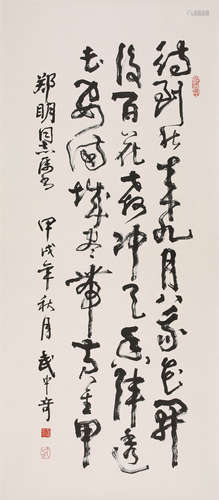 待到秋来九月八我花開
後百花殺冲天香阵透
長安满城尽带黄金甲
郑明同志属书 甲戌年秋月武中奇